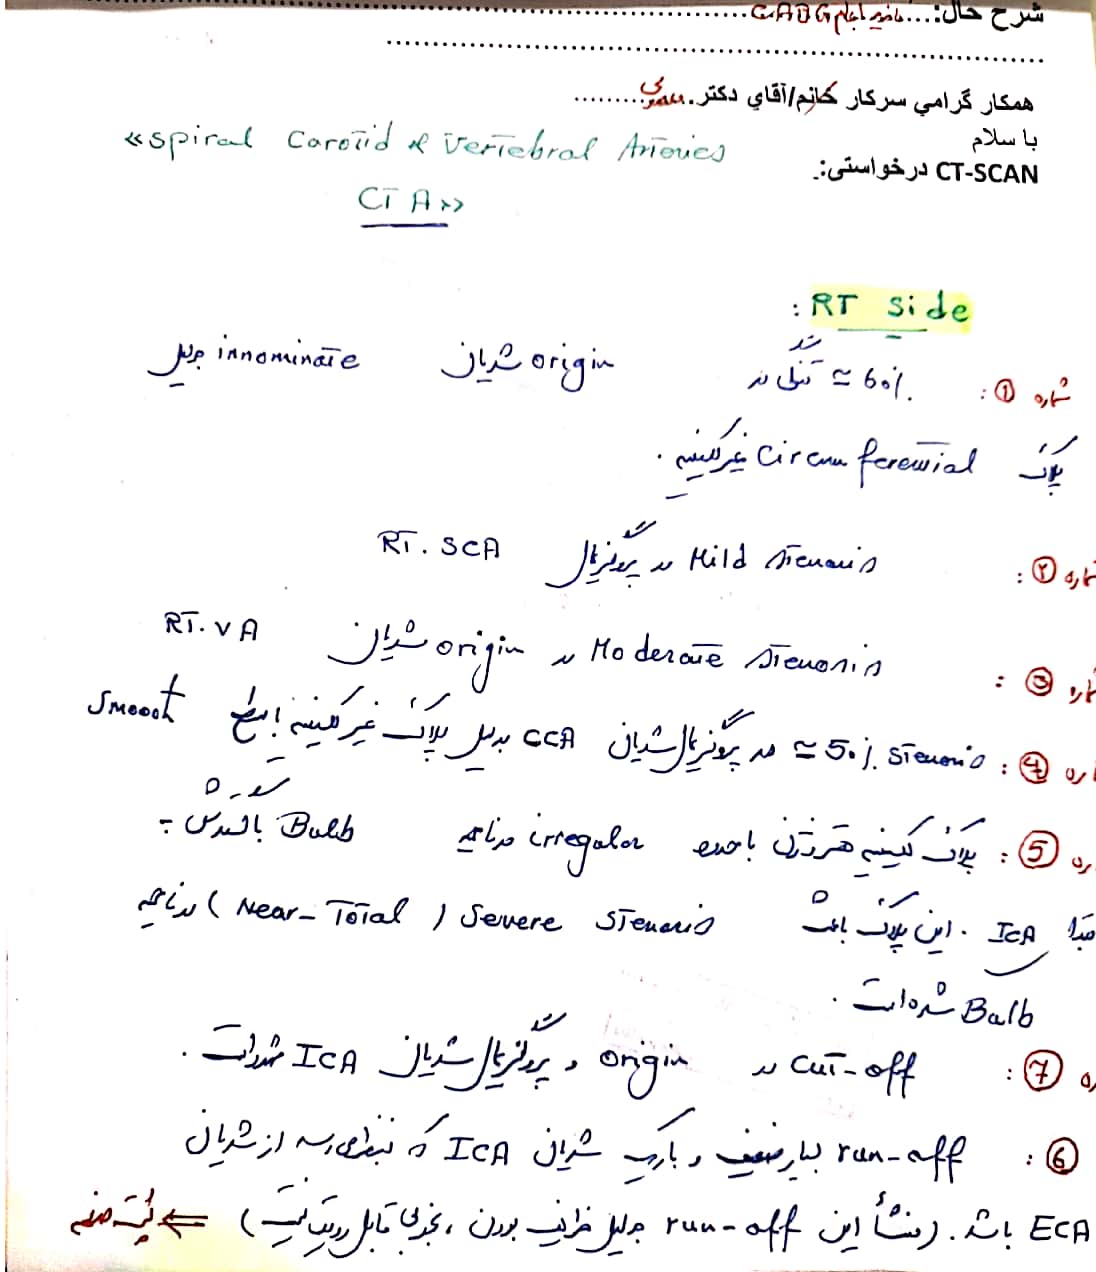 شرح حال:... کاندید انجام CABG
همکار گرامي سرکار خانم/آقاي دکتر
با سلام
CT-SCAN درخواستی:
«Spiral Carotid & Vertebral Arteries
CTA»
RT Side :
شماره ①: تنگی ≃ 60% در origin شریان innominate بدلیل
پلاک Circumferential غیر کلسیفیه.
شماره ②: Mild stenosis در پروگزیمال RT. SCA
شماره ③: Moderate stenosis در origin شریان RT. VA
شماره ④: ≃ 50% stenosis در پروگزیمال شریان CCA بدلیل پلاک غیر کلسیفیه با سطح Smooth
⑤: پلاک کلسیفیه هتروژن با حدود irregular در ناحیه Bulb با گسترش به
مبدا ICA. این پلاک باعث Severe stenosis (Near-Total) در ناحیه
Bulb شده است.
⑦: Cut-off در origin و پروگزیمال شریان ICA مشهود است.
⑥: run-off بسیار ضعیف و باریک شریان ICA که بنظر می‌رسد از شریان
ECA باشد. (منشأ این run-off بدلیل ظریف بودن، بخوبی قابل رویت نیست) ⇐ پشت صفحه